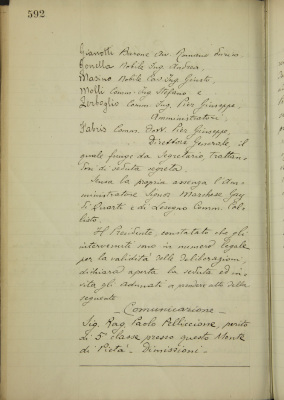 592
Gianotti Barone Cav. Romano
Nobile Ing. Andrea,
Masino Nobile Cav. Ing. Giusto,
Molli Comm. Ing. Stefano e
Comm. Ing. Pier Giuseppe,
Amministratori.
Fabris Comm. Dott. Pier Giuseppe,
Direttore Generale, il
quale funge da Segretario, trattan-
dosi di seduta segreta.
la propria assenza l'Am-
ministratore Marchese
e di Comm. Cal-
listo.
Il Presidente, constatato che gli
intervenuti sono in numero legale
per la validità delle deliberazioni,
dichiara aperta la seduta ed in-
vita gli adunati a prendere atto della
seguente
Comunicazione -
Sig. Rag. Paolo Pelliccione, perito
di 5ª classe presso questo Monte
di Pietà. - Dimissioni. -